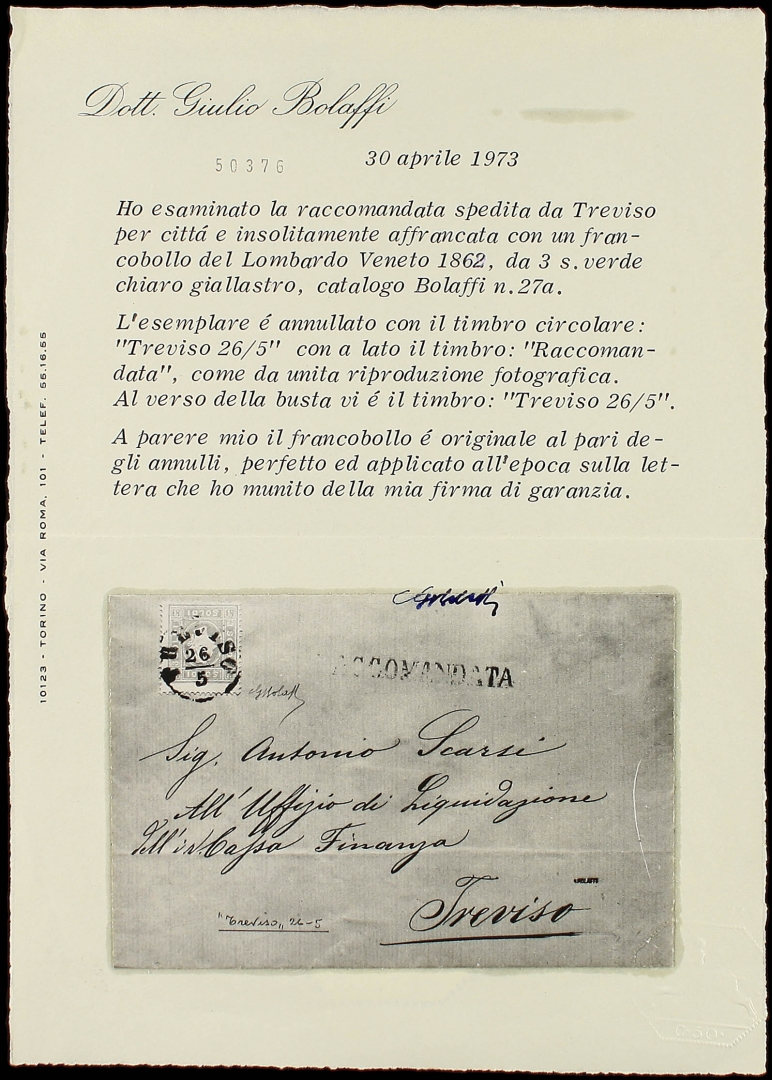 Dott. Giulio Bolaffi
50376
30 aprile 1973
Ho esaminato la raccomandata spedita da Treviso
per cittá e insolitamente affrancata con un fran-
cobollo del Lombardo Veneto 1862, da 3 s. verde
chiaro giallastro, catalogo Bolaffi n.27a.
L'esemplare é annullato con il timbro circolare:
"Treviso 26/5" con a lato il timbro: "Raccoman-
data", come da unita riproduzione fotografica.
Al verso della busta vi é il timbro: "Treviso 26/5".
A parere mio il francobollo é originale al pari de-
gli annulli, perfetto ed applicato all'epoca sulla let-
tera che ho munito della mia firma di garanzia.
10123 - TORINO - VIA ROMA, 101 - TELEF. 55.16.55
SOLDI
TREVISO
26
5
GBolaffi
ACCOMANDATA
Sig. Antonio Scarsi
All' Uffizio di Liquidazione
dell' Cassa Finanza
Treviso
"Treviso" 26-5